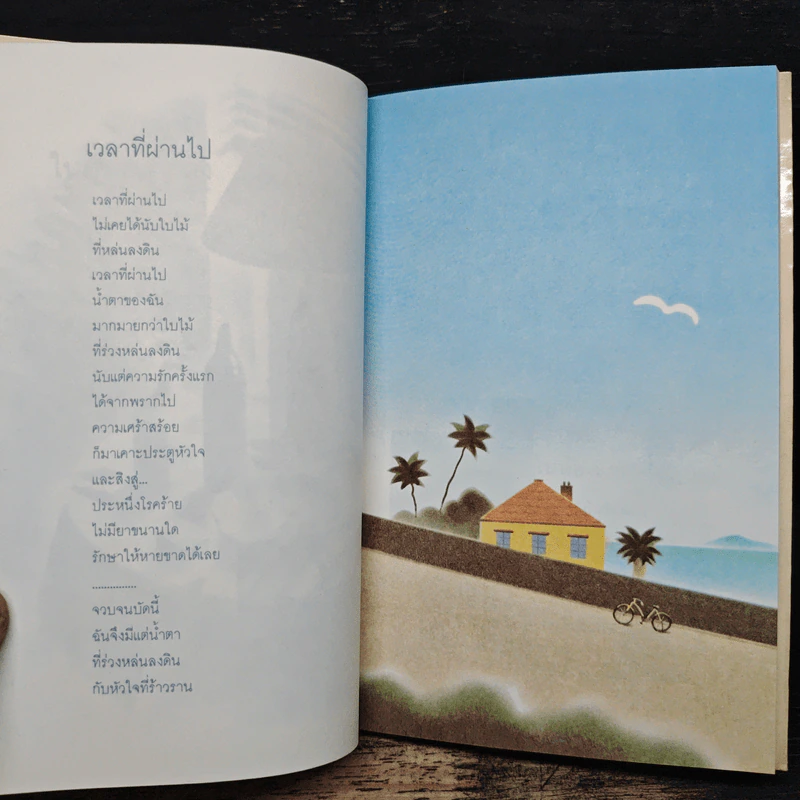 เวลาที่ผ่านไป
เวลาที่ผ่านไป
ไม่เคยได้นับใบไม้
ที่หล่นลงดิน
เวลาที่ผ่านไป
น้ำตาของฉัน
มากมายกว่าใบไม้
ที่ร่วงหล่นลงดิน
นับแต่ความรักครั้งแรก
ได้จากพรากไป
ความเศร้าสร้อย
ก็มาเคาะประตูหัวใจ
และสิงสู่...
ประหนึ่งโรคร้าย
ไม่มียาขนานใด
รักษาให้หายขาดได้เลย
..............
จวบจนบัดนี้
ฉันจึงมีแต่น้ำตา
ที่ร่วงหล่นลงดิน
กับหัวใจที่ร้าวราน